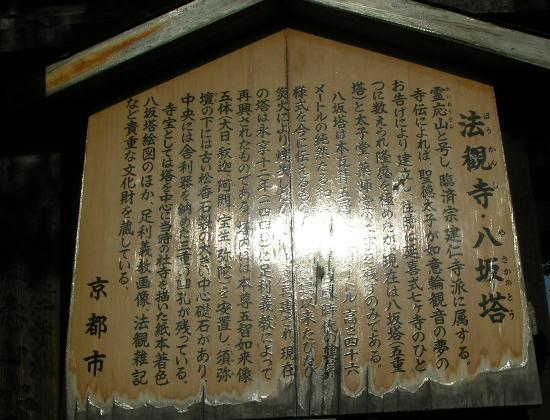 法観寺・八坂塔
ほうかんじ
やさかのとう
霊応山と号し、臨済宗建仁寺派に属する。
れいおうざん
寺伝によれば、聖徳太子が如意輪観音の夢の
お告げにより建立し、往時は延喜式七ヶ寺のひと
つに数えられ隆盛を極めたが、現在は八坂塔(五重
塔)と太子堂、薬師堂の二宇を残すのみである。
八坂塔は本瓦葺五重 メートル、高さ四十六
メートルの純然たる 時代の建築
様式を今に伝える
災火により焼失した 再建され、現在
の塔は永享十二年(一四四〇)に足利義教によって
再興されたものである。塔内には本尊五智如来像
五体(大日、釈迦、阿閦、宝生、弥陀)を安置し、須弥
壇の下には古い松香石製の大きい中心礎石があり、
中央には舎利器を納めた三重の凹孔が残っている。
寺宝としては塔を中心に当時の社寺を描いた紙本著色
八坂塔絵図のほか、足利義教画像、法観雑記
など貴重な文化財を蔵している。
京都市